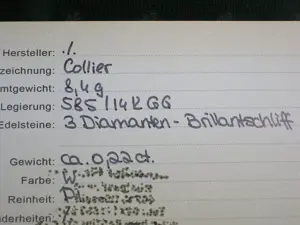 Hersteller: ./.
zeichnung: Collier
mtgewicht: 8,4g
Legierung: 585/14k GG
Edelsteine: 3 Diamanten - Brillantschliff
Gewicht: ca. 0,22ct.
Farbe: W
Reinheit: Pi
nderheiten: